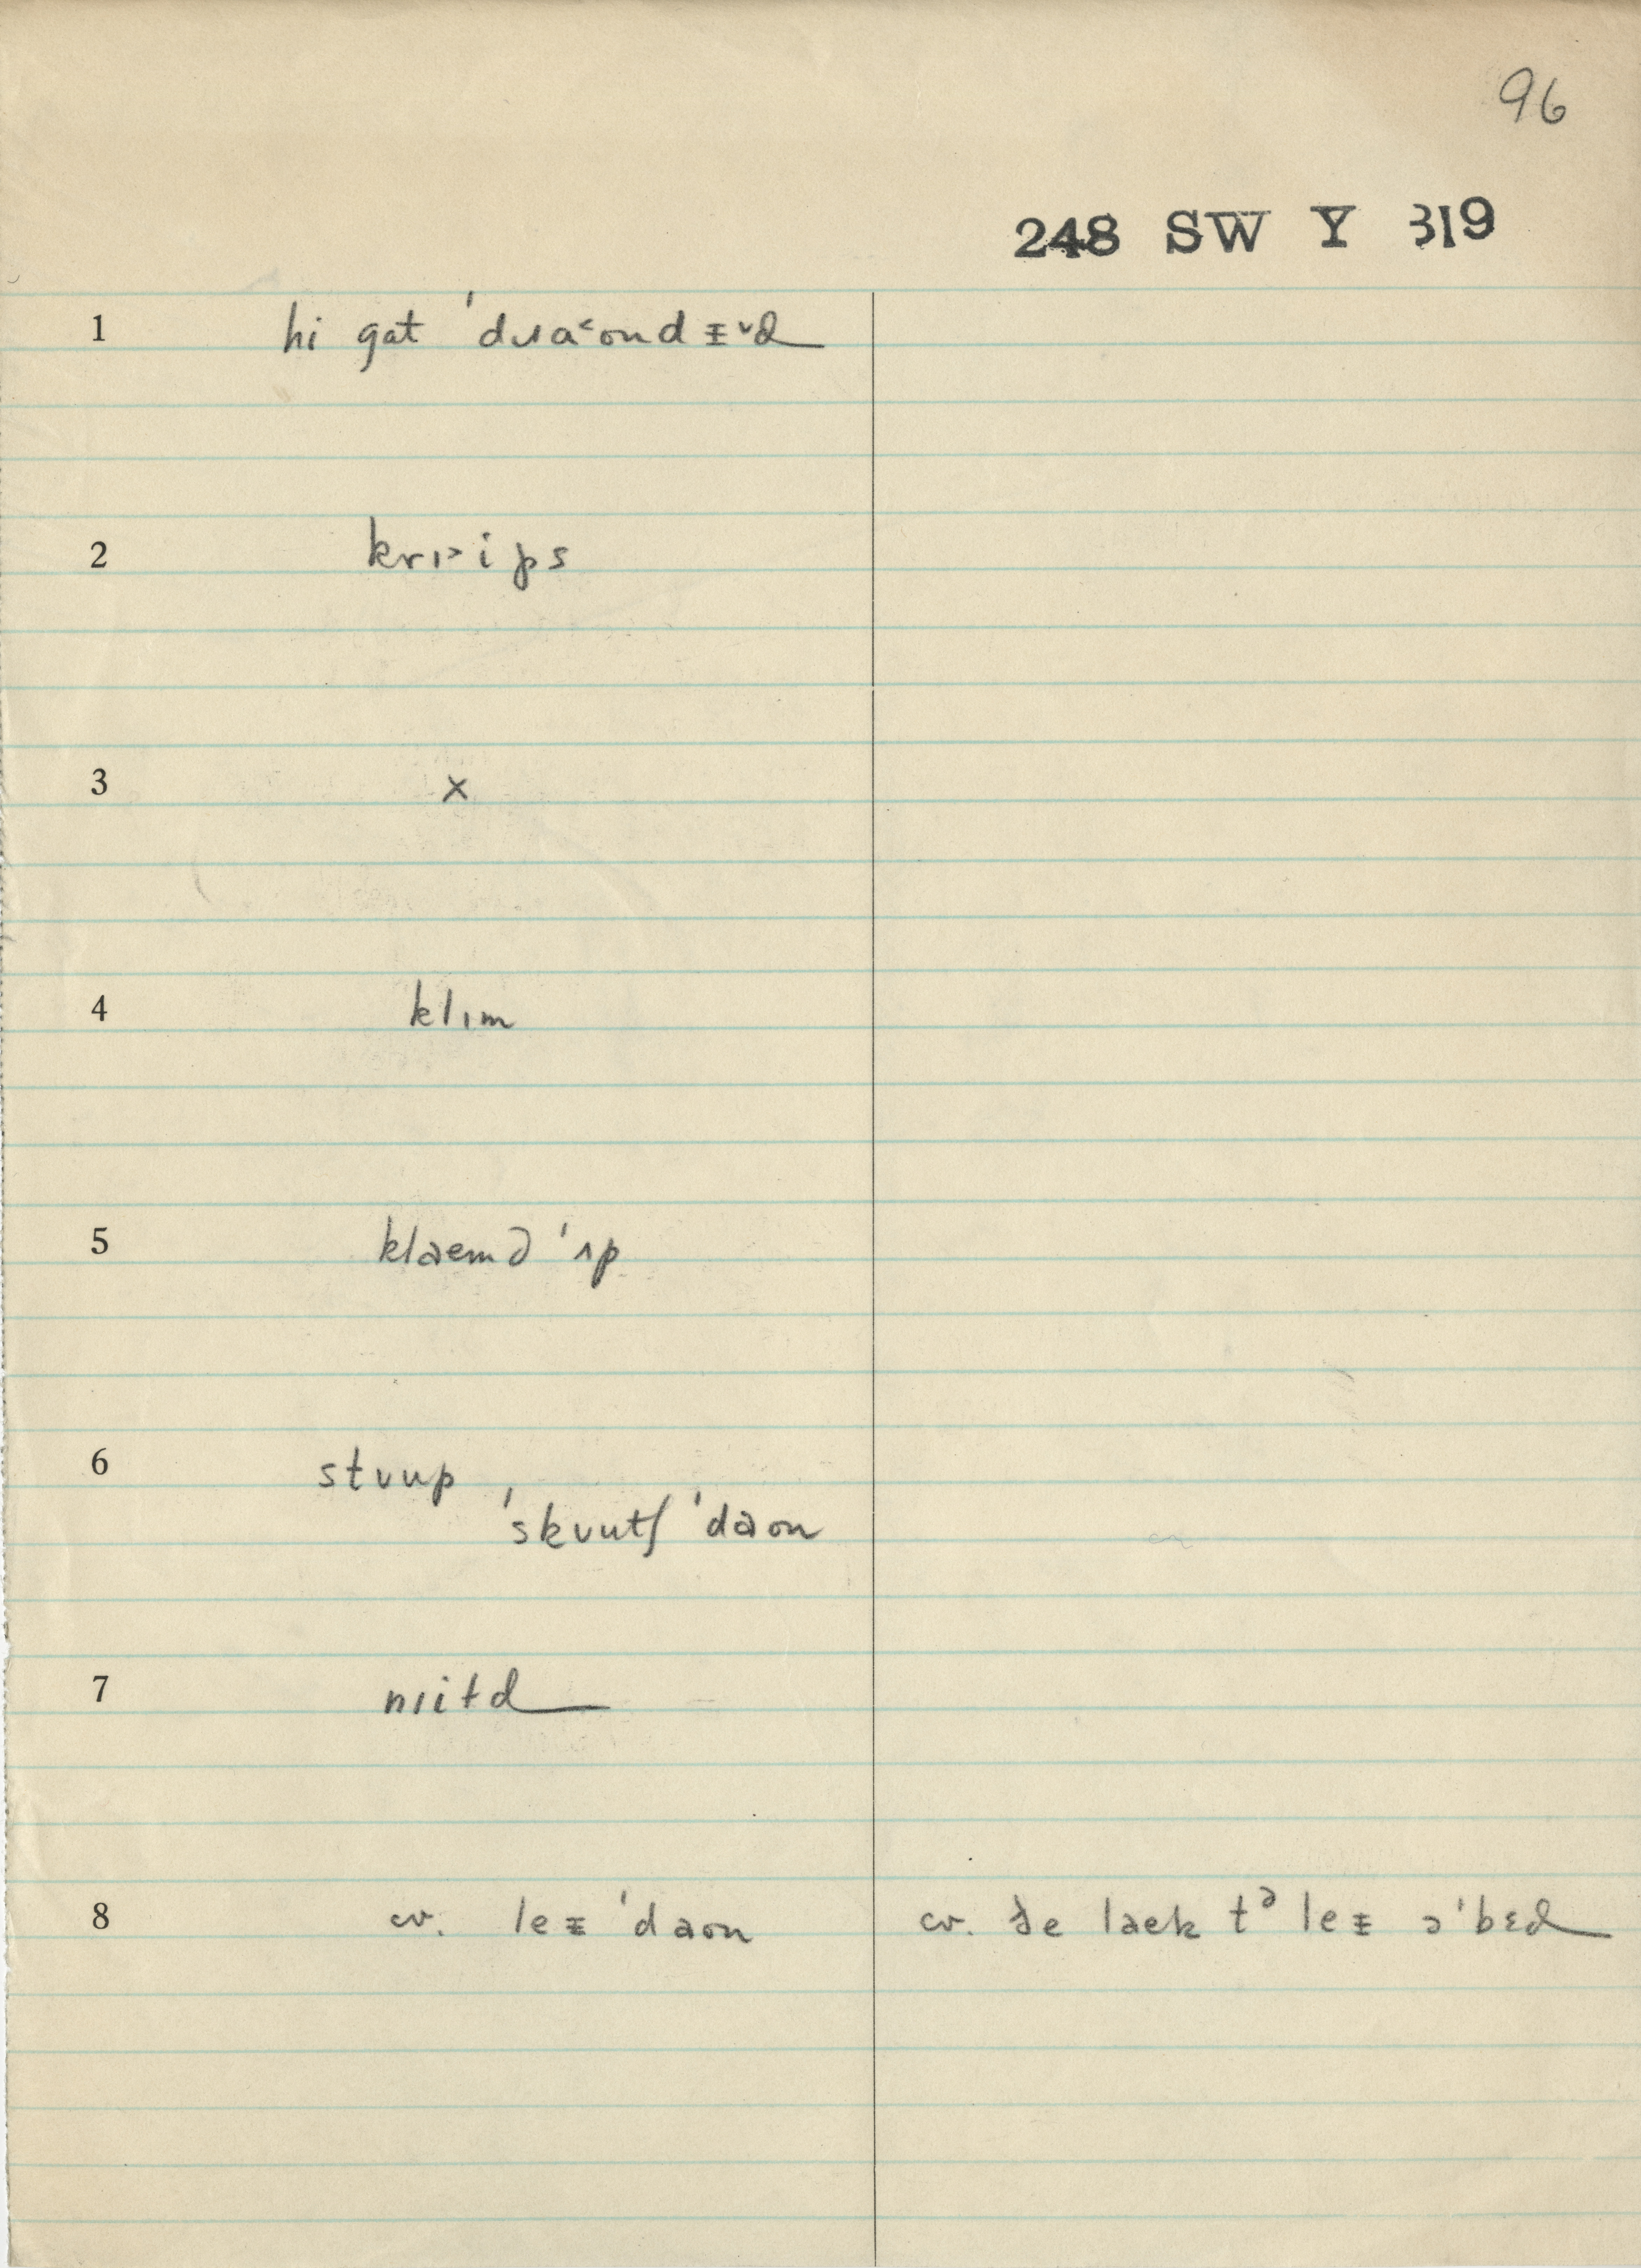 96
248 SW Y 319
1 hi gat ˈdɹa˂ondɪ̵˅d
2 krɪ˃ips
3 x
4 klɪm
5 klaemd ˈʌp
6 stʊup
ˈskʊutʃ ˈdaon
7 nɪitd
8 cv. leɪ̵ ˈdaon cv. ðe laek tᵊ leɪ̵ əˈbɛd